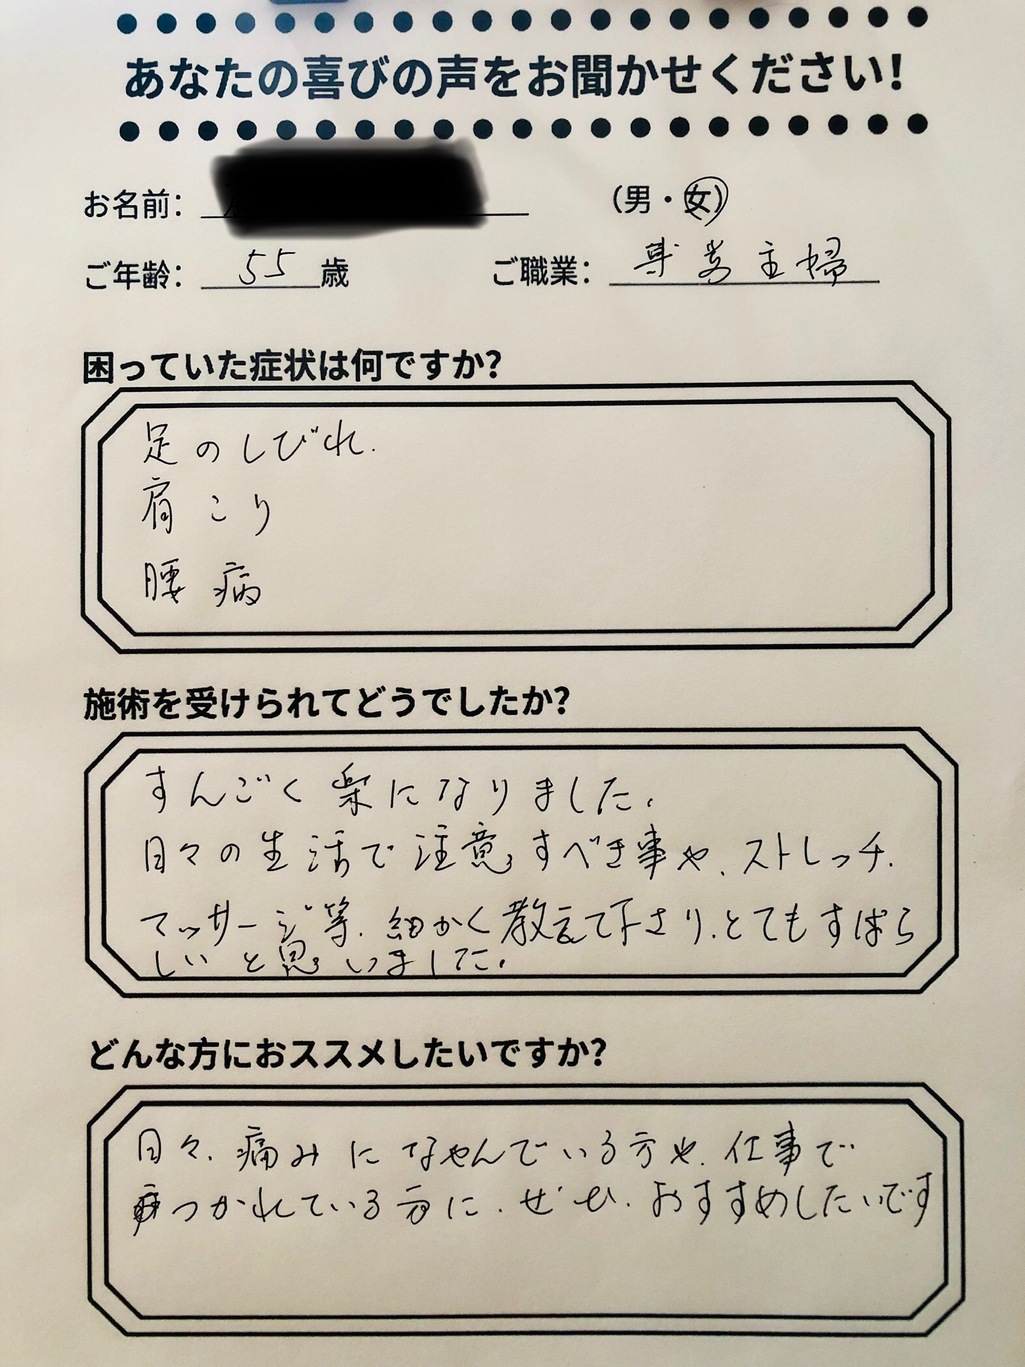 あなたの喜びの声をお聞かせください!
お名前: (男・女)
ご年齢: 55歳 ご職業: 専業主婦
困っていた症状は何ですか?
足のしびれ.
肩こり
腰病
施術を受けられてどうでしたか?
すんごく楽になりました。
日々の生活で注意すべき事や、ストレッチ.
マッサージ等、細かく教えて下さり、とてもすばら
しいと思いました。
どんな方におススメしたいですか?
日々、痛みになやんでいる方や、仕事で
つかれている方に、ぜひ、おすすめしたいです